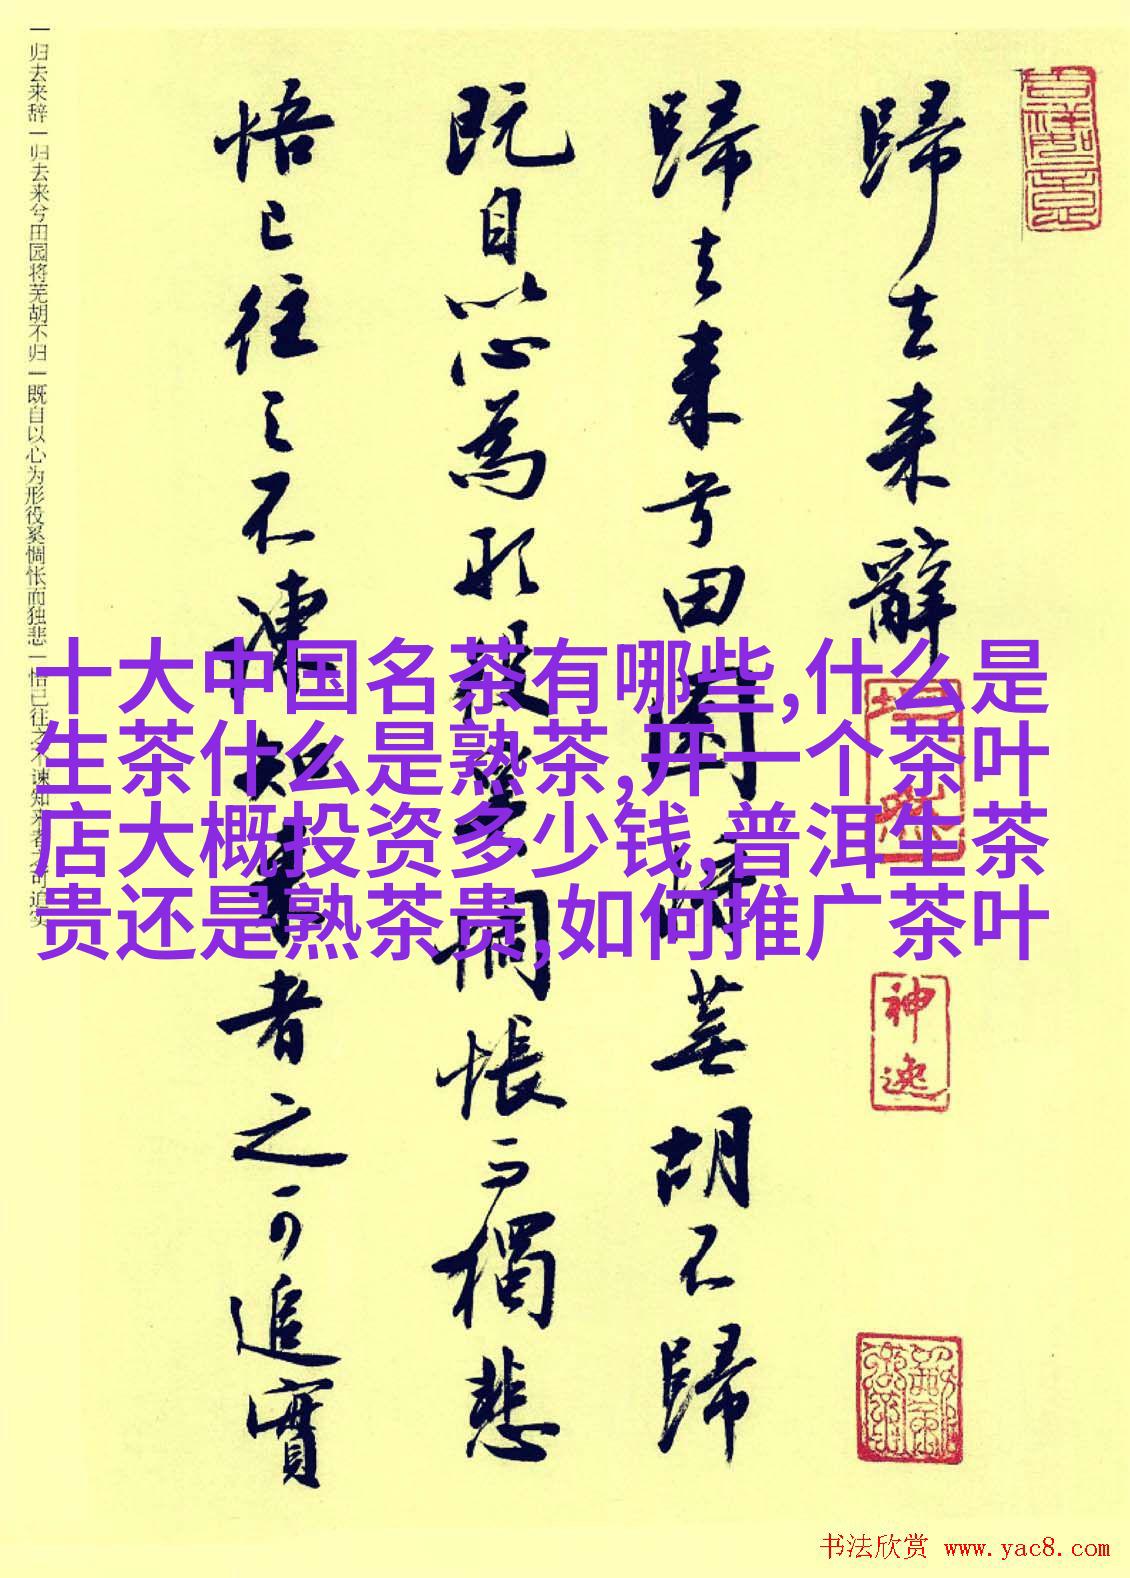 歸去来辭
歸去来兮田園將蕪胡不歸
既自以心為形役奚惆悵而獨悲
悟已往之不諫知来者之可追實
一归去来辞一归去来兮田园将芜胡不归一既自以心为形役奚惆怅而独悲一悟已往之不谏知来者之可追实
神逸
十大中国名茶有哪些,什么是
生茶什么是熟茶,开一个茶叶
店大概投资多少钱,普洱生茶
贵还是熟茶贵,如何推广茶叶
书法欣赏 www.yac8.com